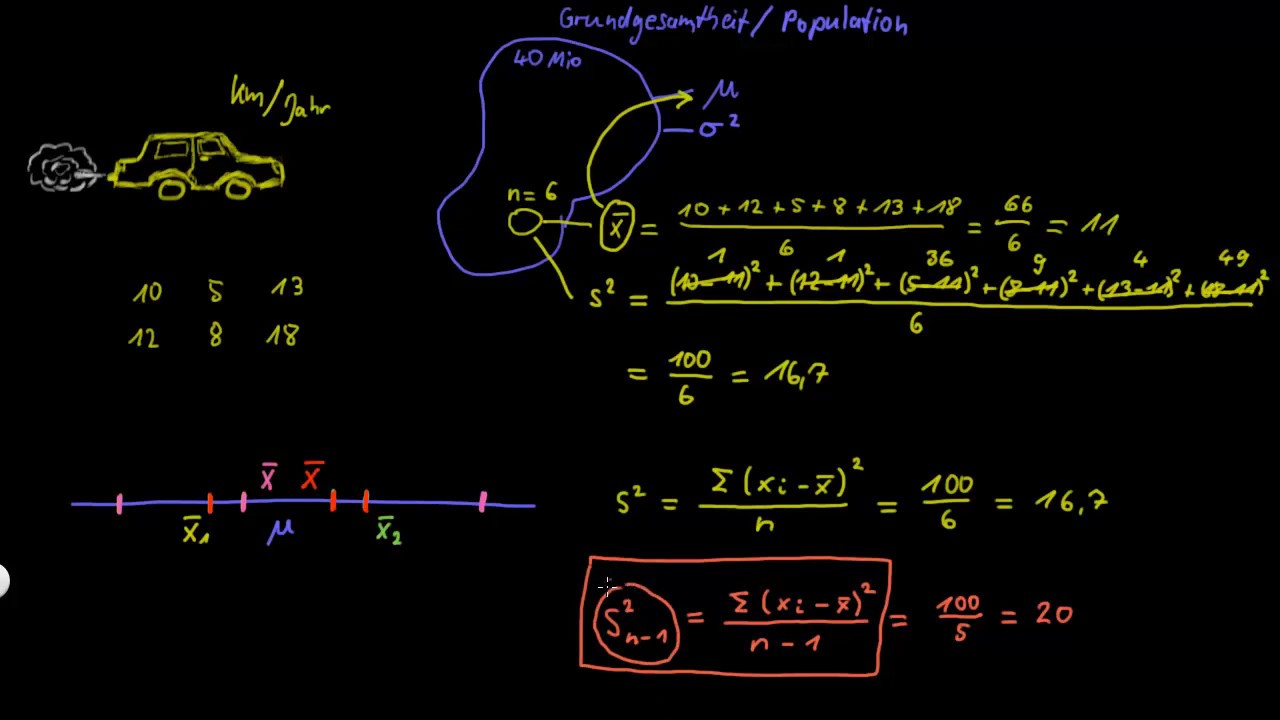 Grundgesamtheit / Population
40 Mio
km/Jahr
μ
σ²
n = 6
x̄ = (10 + 12 + 5 + 8 + 13 + 18) / 6 = 66 / 6 = 11
1 1 36 9 4 49
s² = ((10 - 11)² + (12 - 11)² + (5 - 11)² + (8 - 11)² + (13 - 11)² + (18 - 11)²) / 6
10 5 13
12 8 18
= 100 / 6 = 16,7
x̄ x̄
x̄₁ μ x̄₂
s² = Σ (xi - x̄)² / n = 100 / 6 = 16,7
S²n-1 = Σ (xi - x̄)² / n - 1 = 100 / 5 = 20